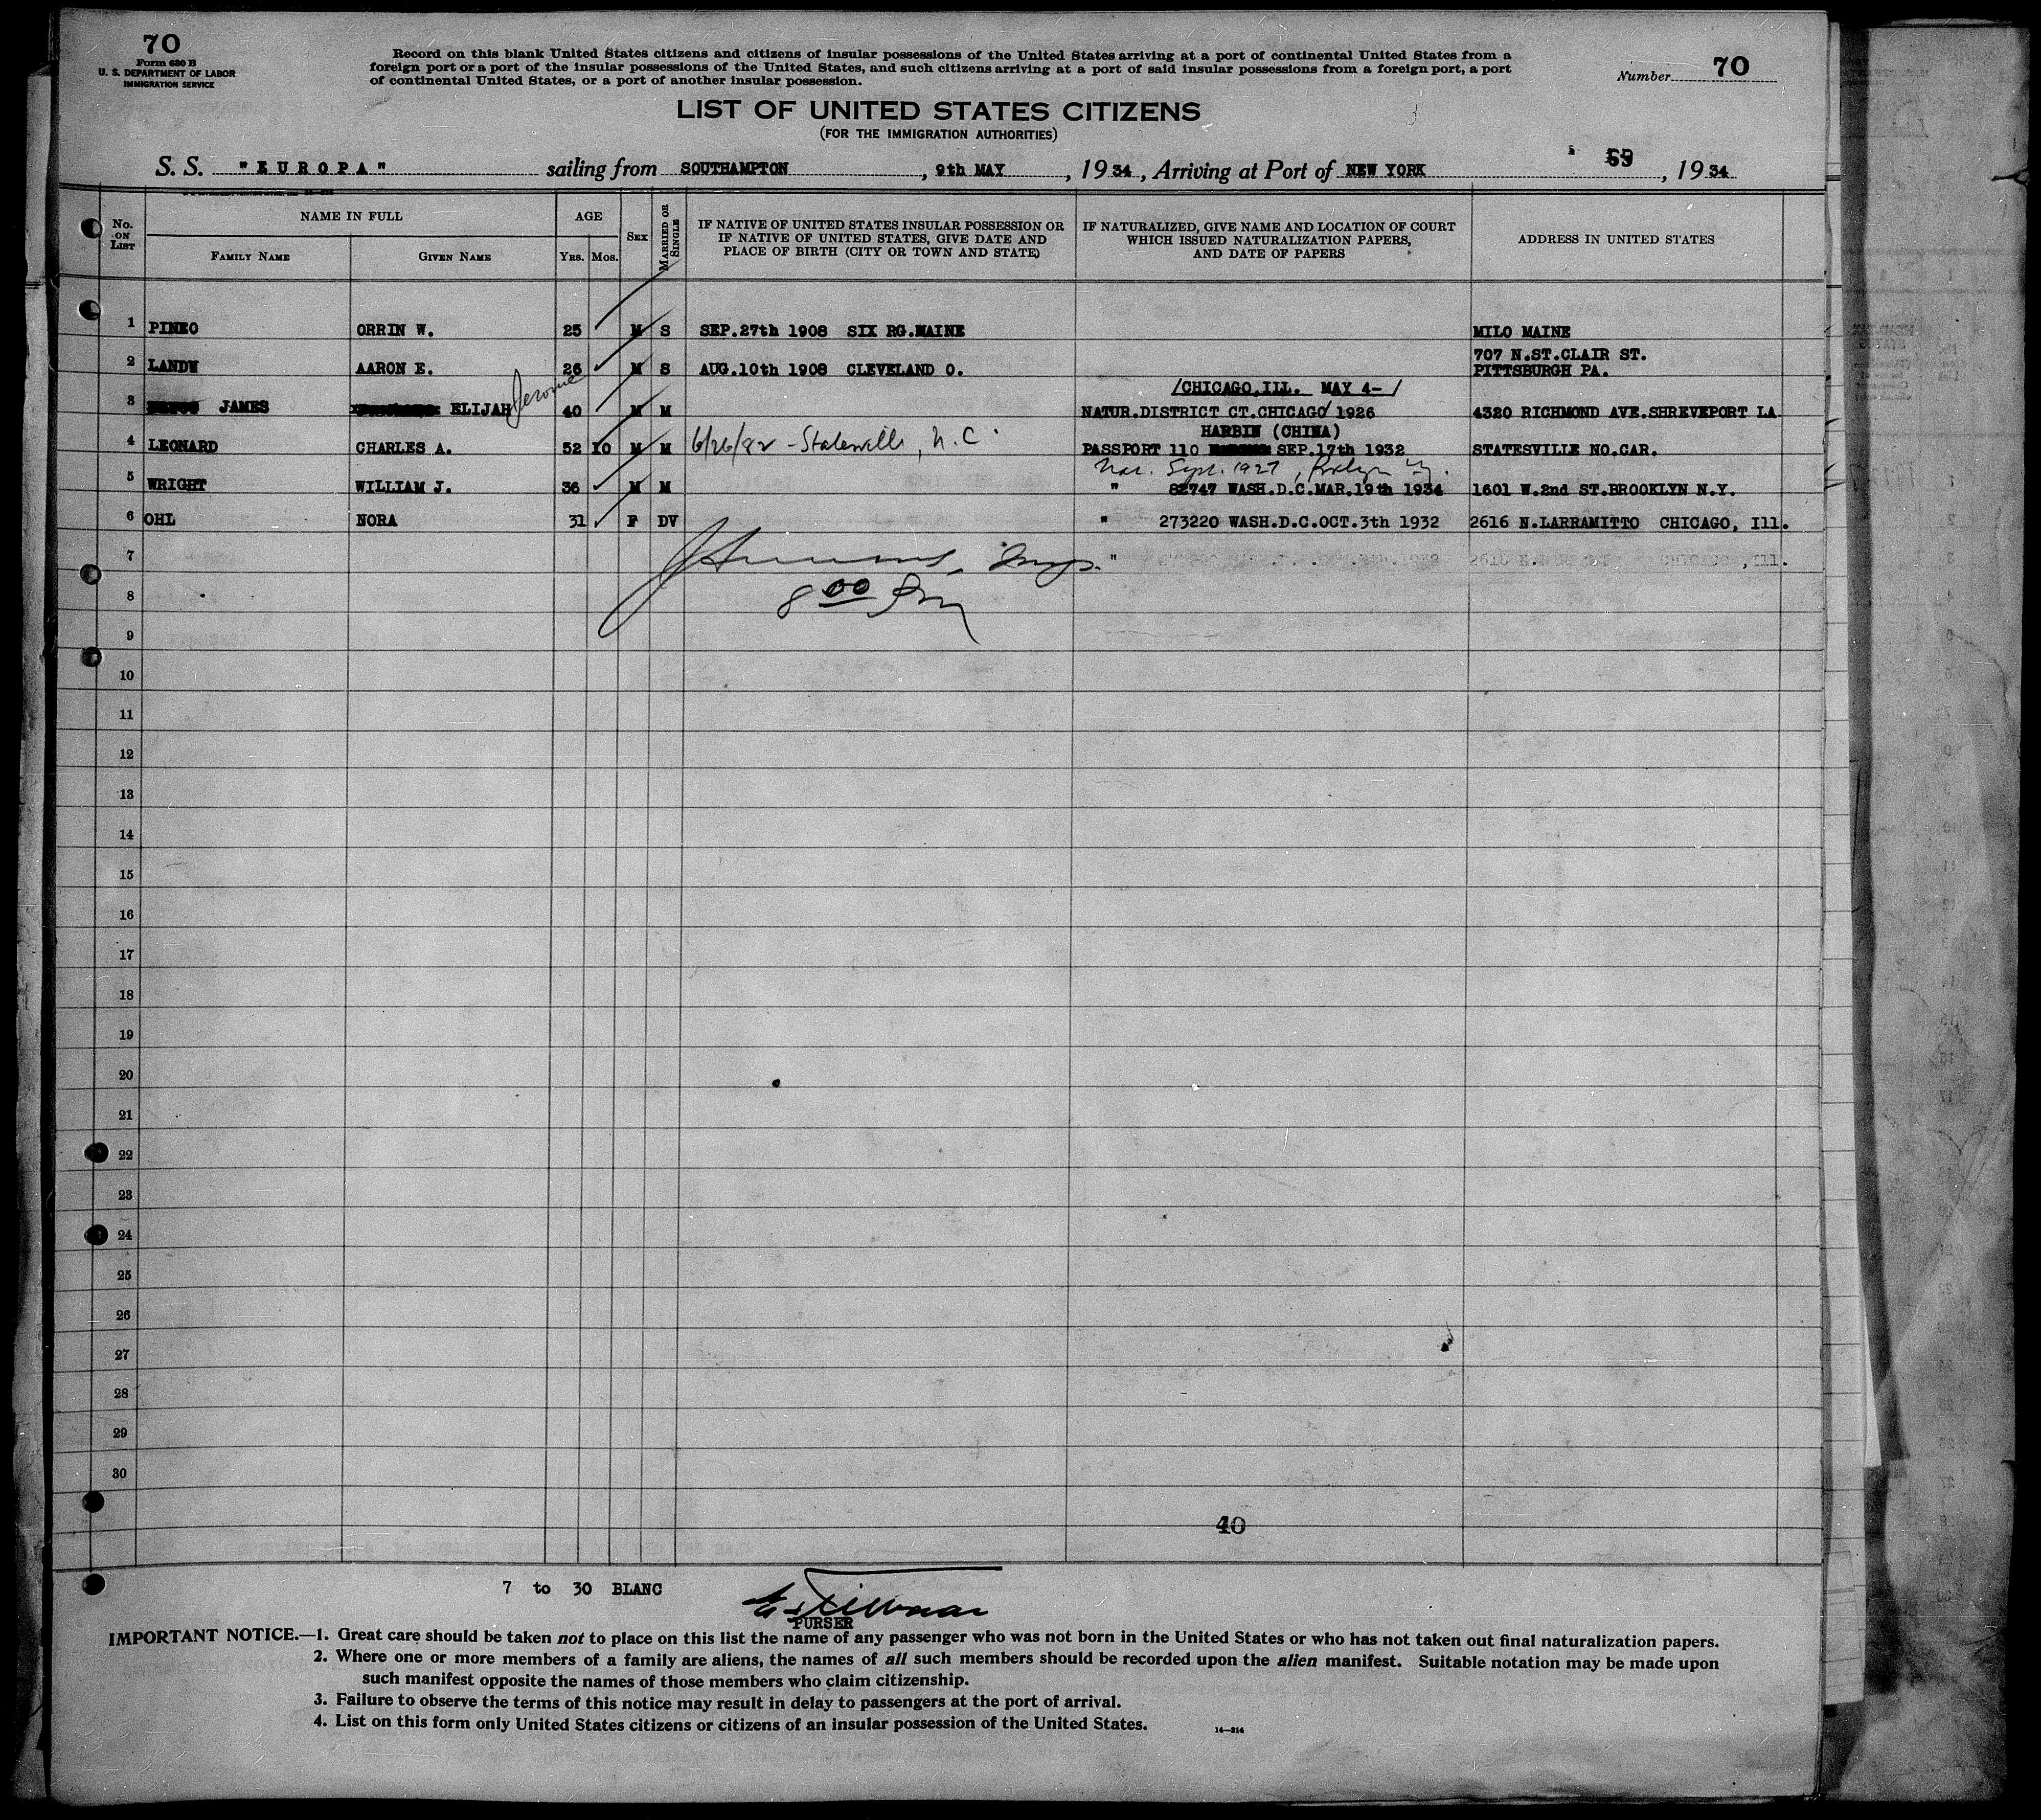 70
Form 630 B
U. S. DEPARTMENT OF LABOR
IMMIGRATION SERVICE
Record on this blank United States citizens and citizens of insular possessions of the United States arriving at a port of continental United States from a
foreign port or a port of the insular possessions of the United States, and such citizens arriving at a port of said insular possessions from a foreign port, a port
of continental United States, or a port of another insular possession.
Number 70
LIST OF UNITED STATES CITIZENS
(FOR THE IMMIGRATION AUTHORITIES)
S. S. "EUROPA" sailing from SOUTHAMPTON, 9th MAY, 1934, Arriving at Port of NEW YORK, 1934
No. on List NAME IN FULL AGE Sex Married or Single IF NATIVE OF UNITED STATES INSULAR POSSESSION OR IF NATIVE OF UNITED STATES, GIVE DATE AND PLACE OF BIRTH (CITY OR TOWN AND STATE) IF NATURALIZED, GIVE NAME AND LOCATION OF COURT WHICH ISSUED NATURALIZATION PAPERS, AND DATE OF PAPERS ADDRESS IN UNITED STATES
Family Name Given Name Yrs. Mos.
1 PINEO ORRIN W. 25 M S SEP.27th 1908 SIX RG.MAINE MILO MAINE
707 N.ST.CLAIR ST.
2 LANDY AARON E. 26 M S AUG.10th 1908 CLEVELAND O. PITTSBURGH PA.
Jerome /CHICAGO,ILL. MAY 4-/
3 JAMES ELIJAH 40 M M NATUR.DISTRICT CT.CHICAGO/ 1926 4320 RICHMOND AVE.SHREVEPORT LA.
HARBIN (CHINA)
4 LEONARD CHARLES A. 52 10 M M 6/26/82 - Statesville, N.C. PASSPORT 110 SEP.17th 1932 STATESVILLE NO.CAR.
Nat. Sept. 1927, Bklyn N.Y.
5 WRIGHT WILLIAM J. 36 M M " 82747 WASH.D.C.MAR.19th 1934 1601 W.2nd ST.BROOKLYN N.Y.
6 OHL NORA 31 F DV " 273220 WASH.D.C.OCT.3th 1932 2616 N.LARRAMITTO CHICAGO, Ill.
7 Insp. "
8 8 00 Pm
9
10
11
12
13
14
15
16
17
18
19
20
21
22
23
24
25
26
27
28
29
30
40
7 to 30 BLANC
PURSER
IMPORTANT NOTICE.—1. Great care should be taken not to place on this list the name of any passenger who was not born in the United States or who has not taken out final naturalization papers.
2. Where one or more members of a family are aliens, the names of all such members should be recorded upon the alien manifest. Suitable notation may be made upon
such manifest opposite the names of those members who claim citizenship.
3. Failure to observe the terms of this notice may result in delay to passengers at the port of arrival.
4. List on this form only United States citizens or citizens of an insular possession of the United States.
14—214